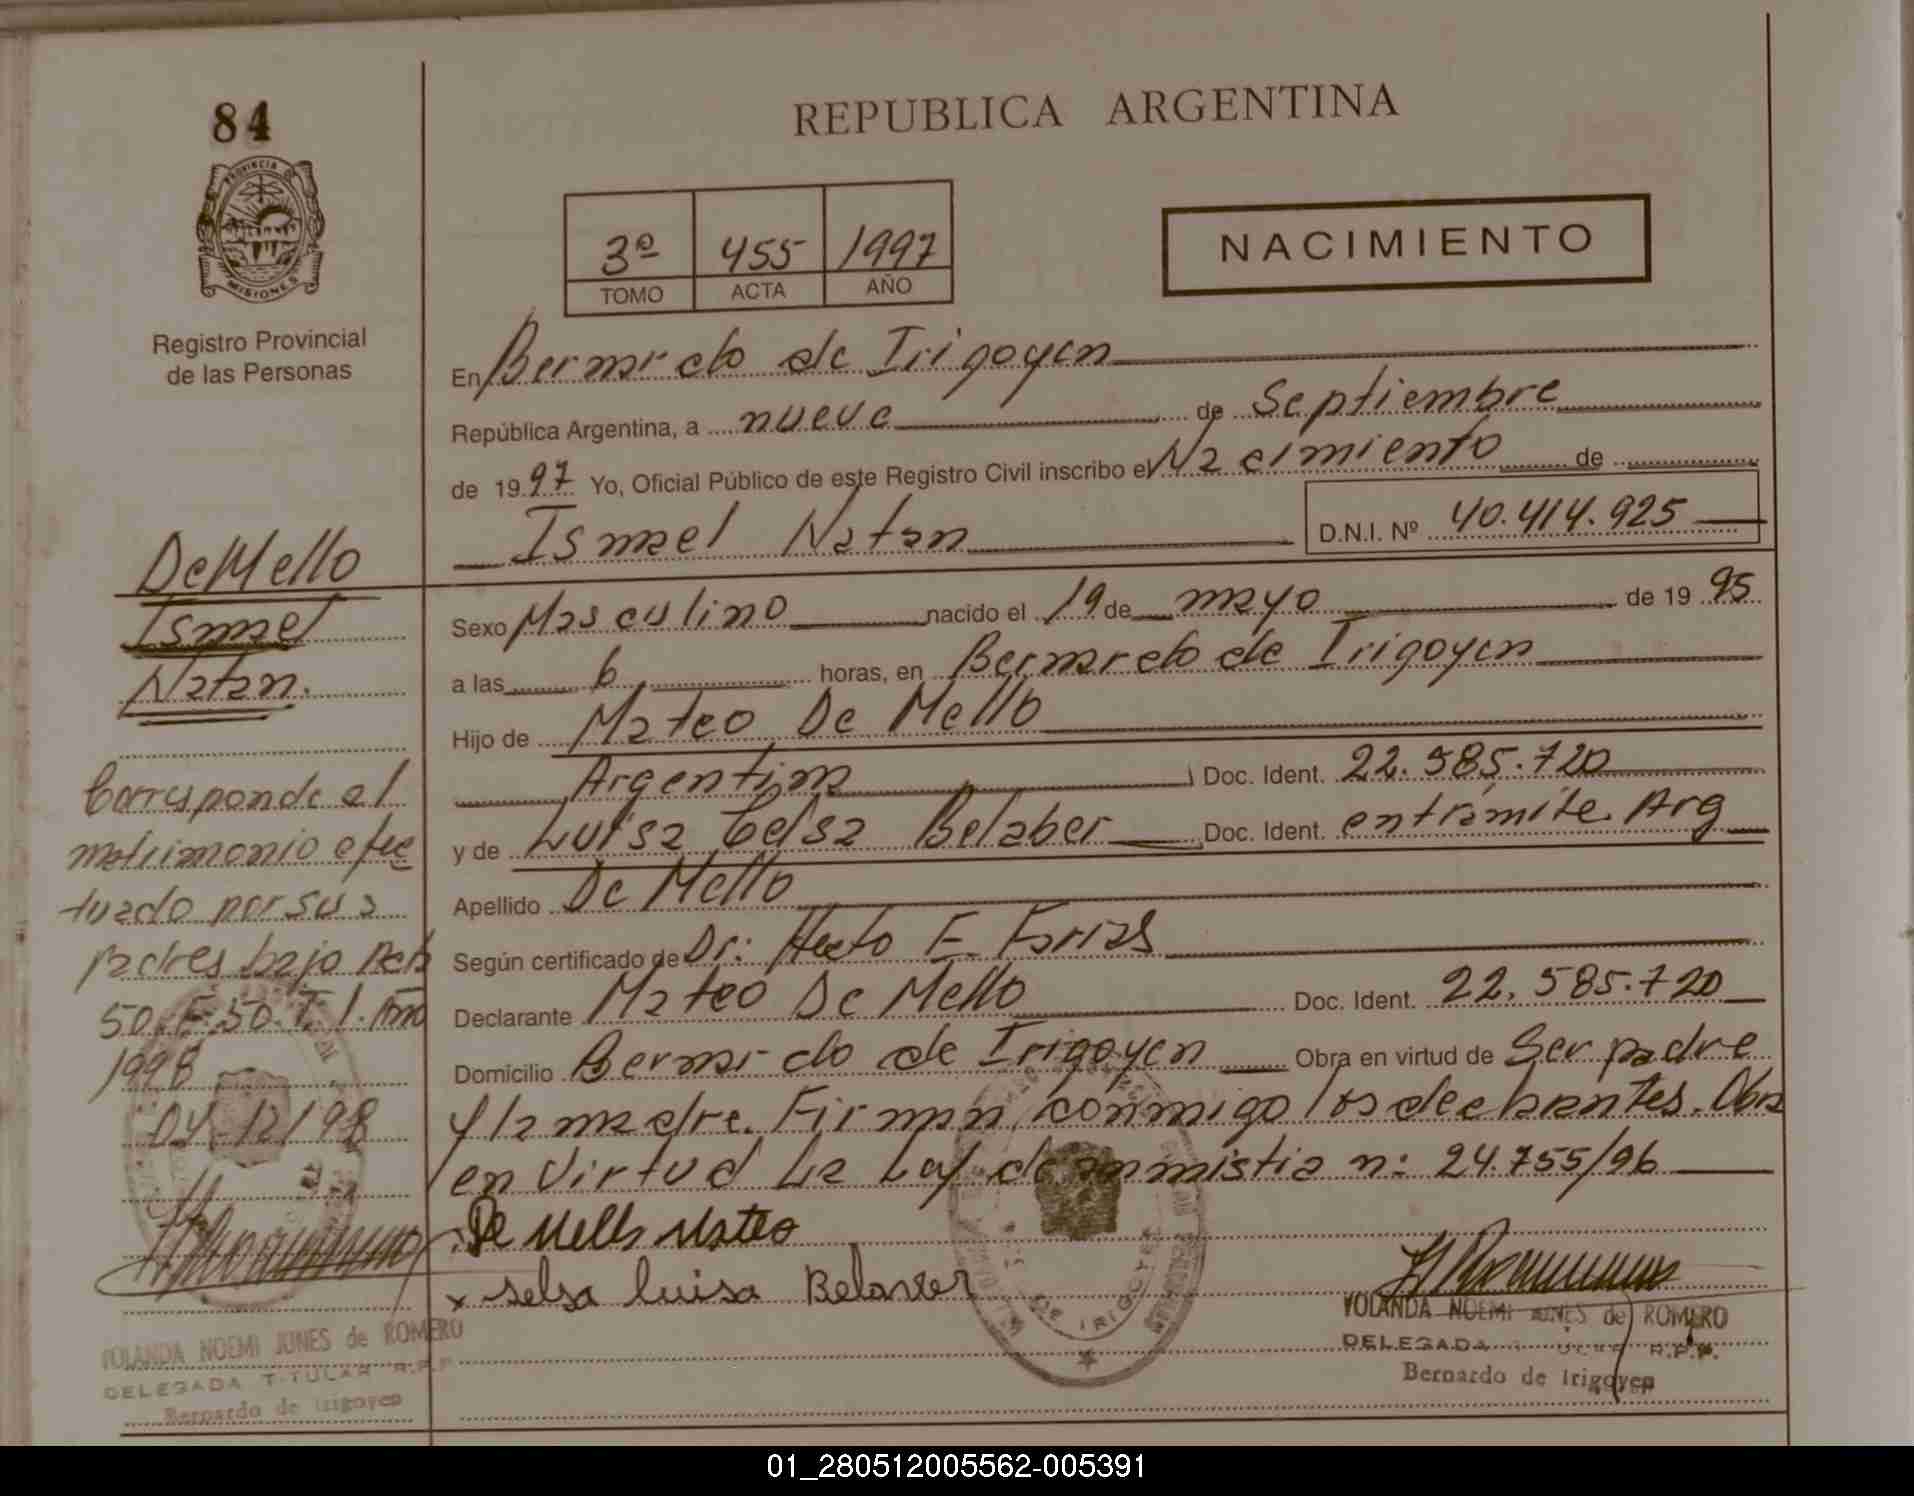 84
PROVINCIA D
MISIONES
Registro Provincial
de las Personas
REPUBLICA ARGENTINA
3º 455 1997
TOMO ACTA AÑO
NACIMIENTO
En Bernardo de Irigoyen
República Argentina, a nueve de Septiembre
de 1997 Yo, Oficial Público de este Registro Civil inscribo el Nacimiento de
Ismael Natan D.N.I. Nº 40.414.925
Sexo Masculino nacido el 19 de mayo de 1995
a las 6 horas, en Bernardo de Irigoyen
Hijo de Mateo De Mello
Argentina Doc. Ident. 22.585.720
y de Luisa Celsa Belaber Doc. Ident. entrámite Arg
Apellido De Mello
Según certificado de Dr: Hecto F. Farias
Declarante Mateo De Mello Doc. Ident. 22.585.720
Domicilio Bernardo de Irigoyen Obra en virtud de Ser padre
y la madre. Firman conmigo los declarantes. Obra
en Virtud La Ley de anmistia n: 24.755/96
De Mello Mateo
x selsa luisa Belaver
YOLANDA NOEMI JUNES de ROMERO
DELEGADA TITULAR R.P.P.
Bernardo de Irigoyen
DE IRIGOYEN
De Mello
Ismael
Natan.
Corresponde al
matrimonio efec
tuado por sus
padres bajo Acta
50. F. 50. T. 1. Año
1998
04-12/98
YOLANDA NOEMI JUNES de ROMERO
DELEGADA TITULAR R.P.P
Bernardo de Irigoyen
01_280512005562-005391